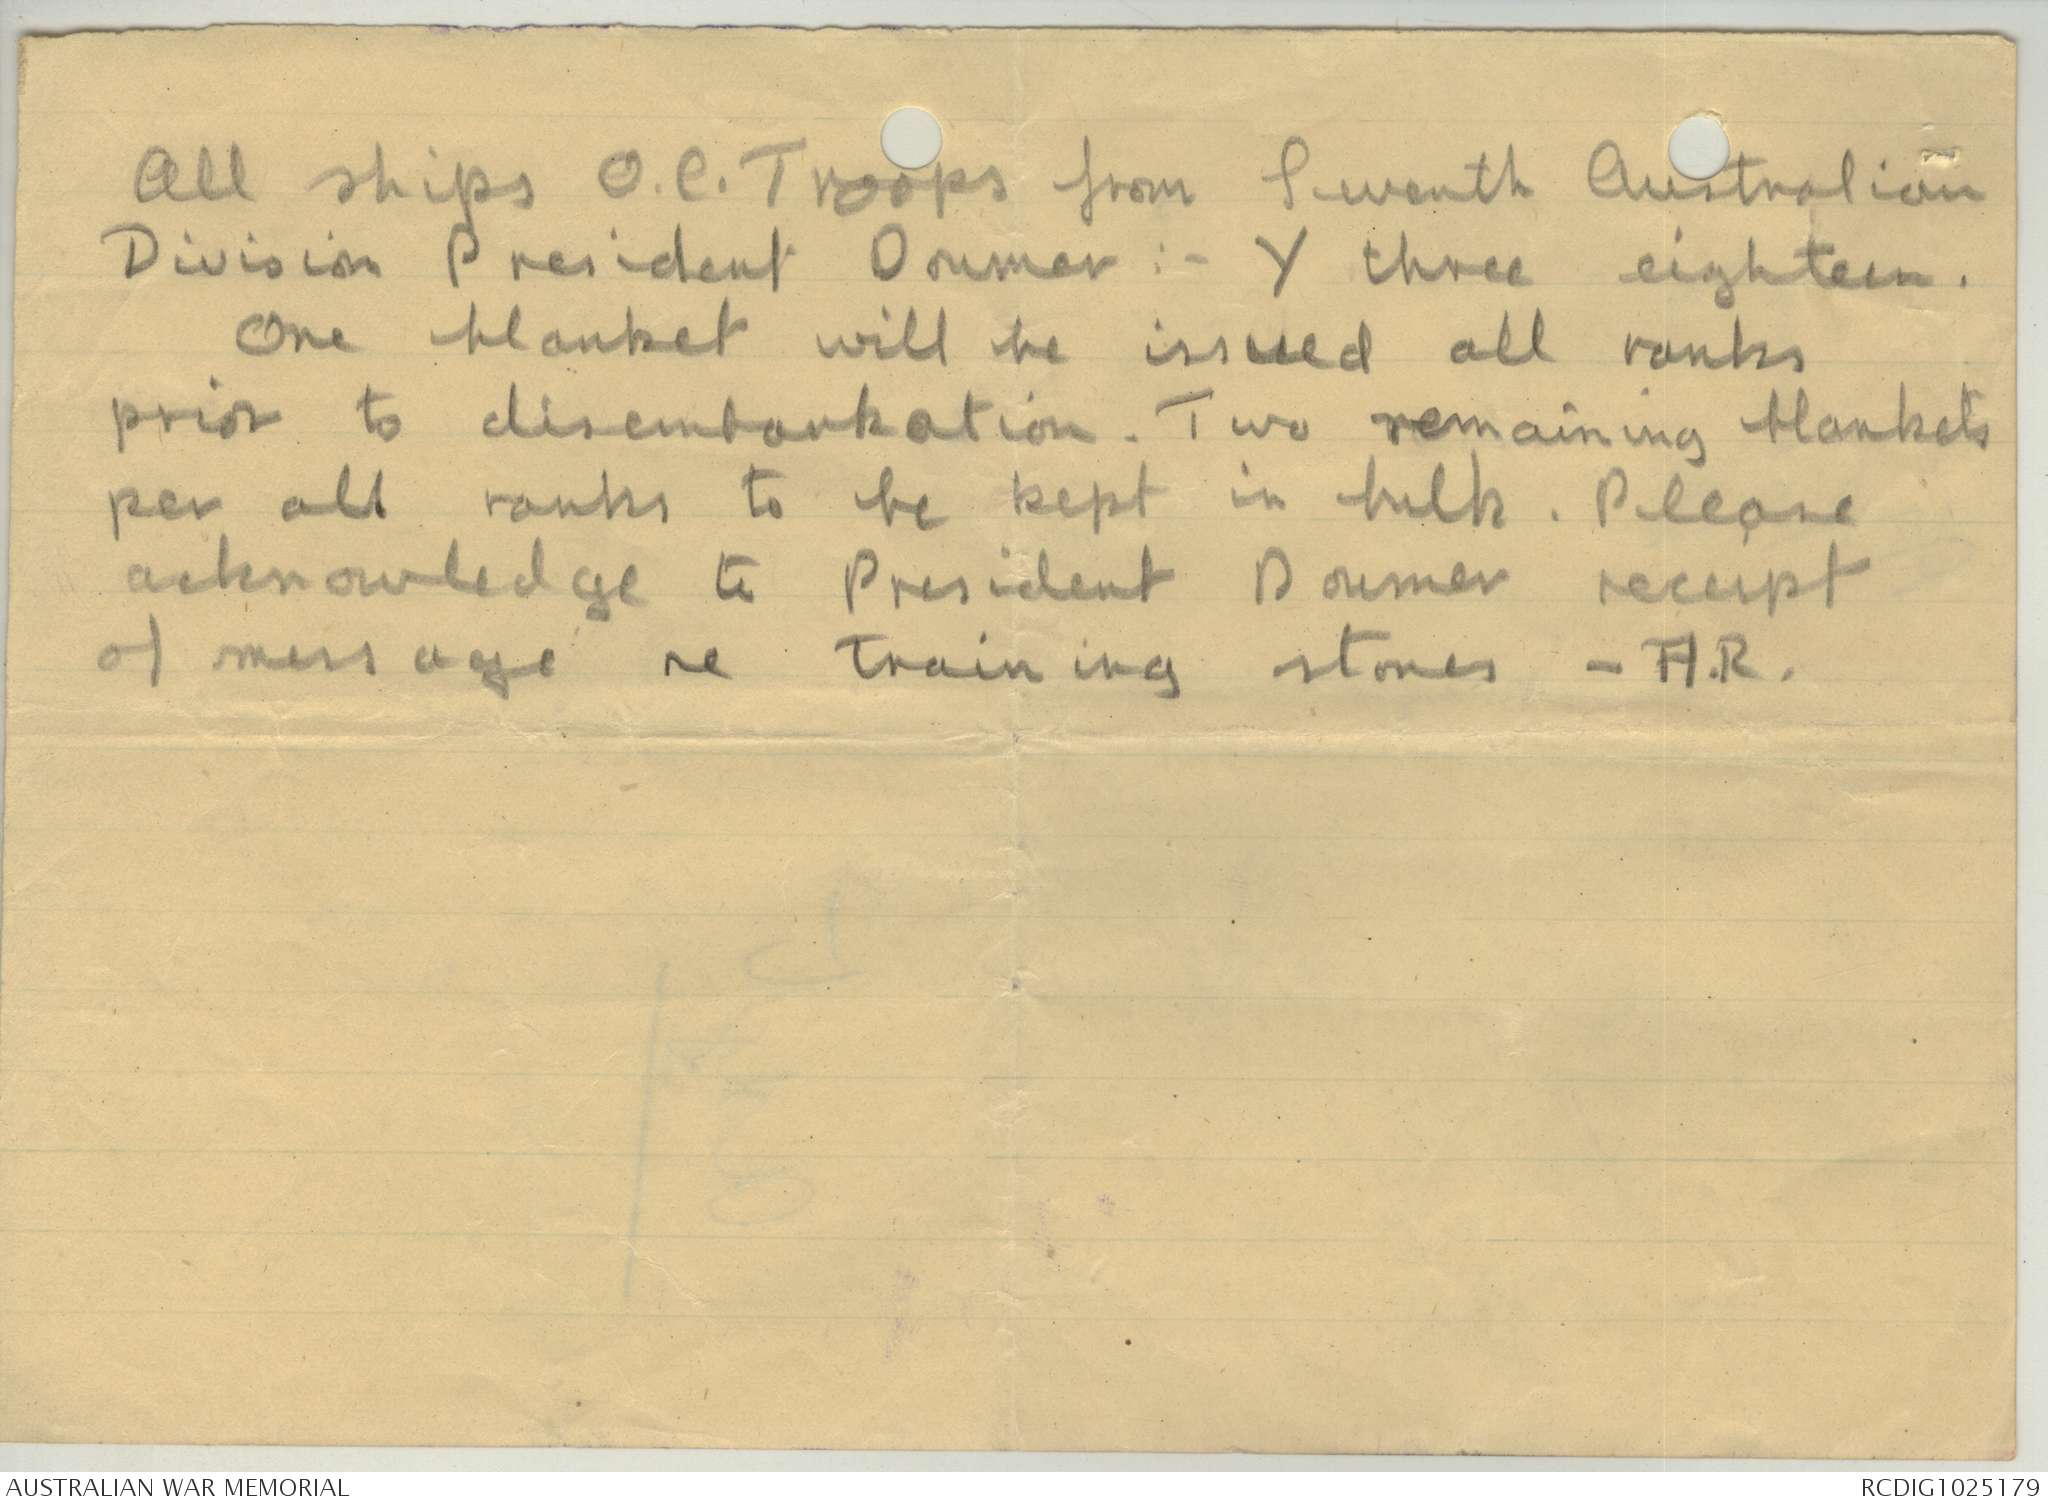 All ships O.C. Troops from Seventh Australian
Division President Doumer :- Y three eighteen.
One blanket will be issued all ranks
prior to disembarkation. Two remaining blankets
per all ranks to be kept in bulk. Please
acknowledge to President Doumer receipt
of message re training stores - A.R.
AUSTRALIAN WAR MEMORIAL
RCDIG1025179